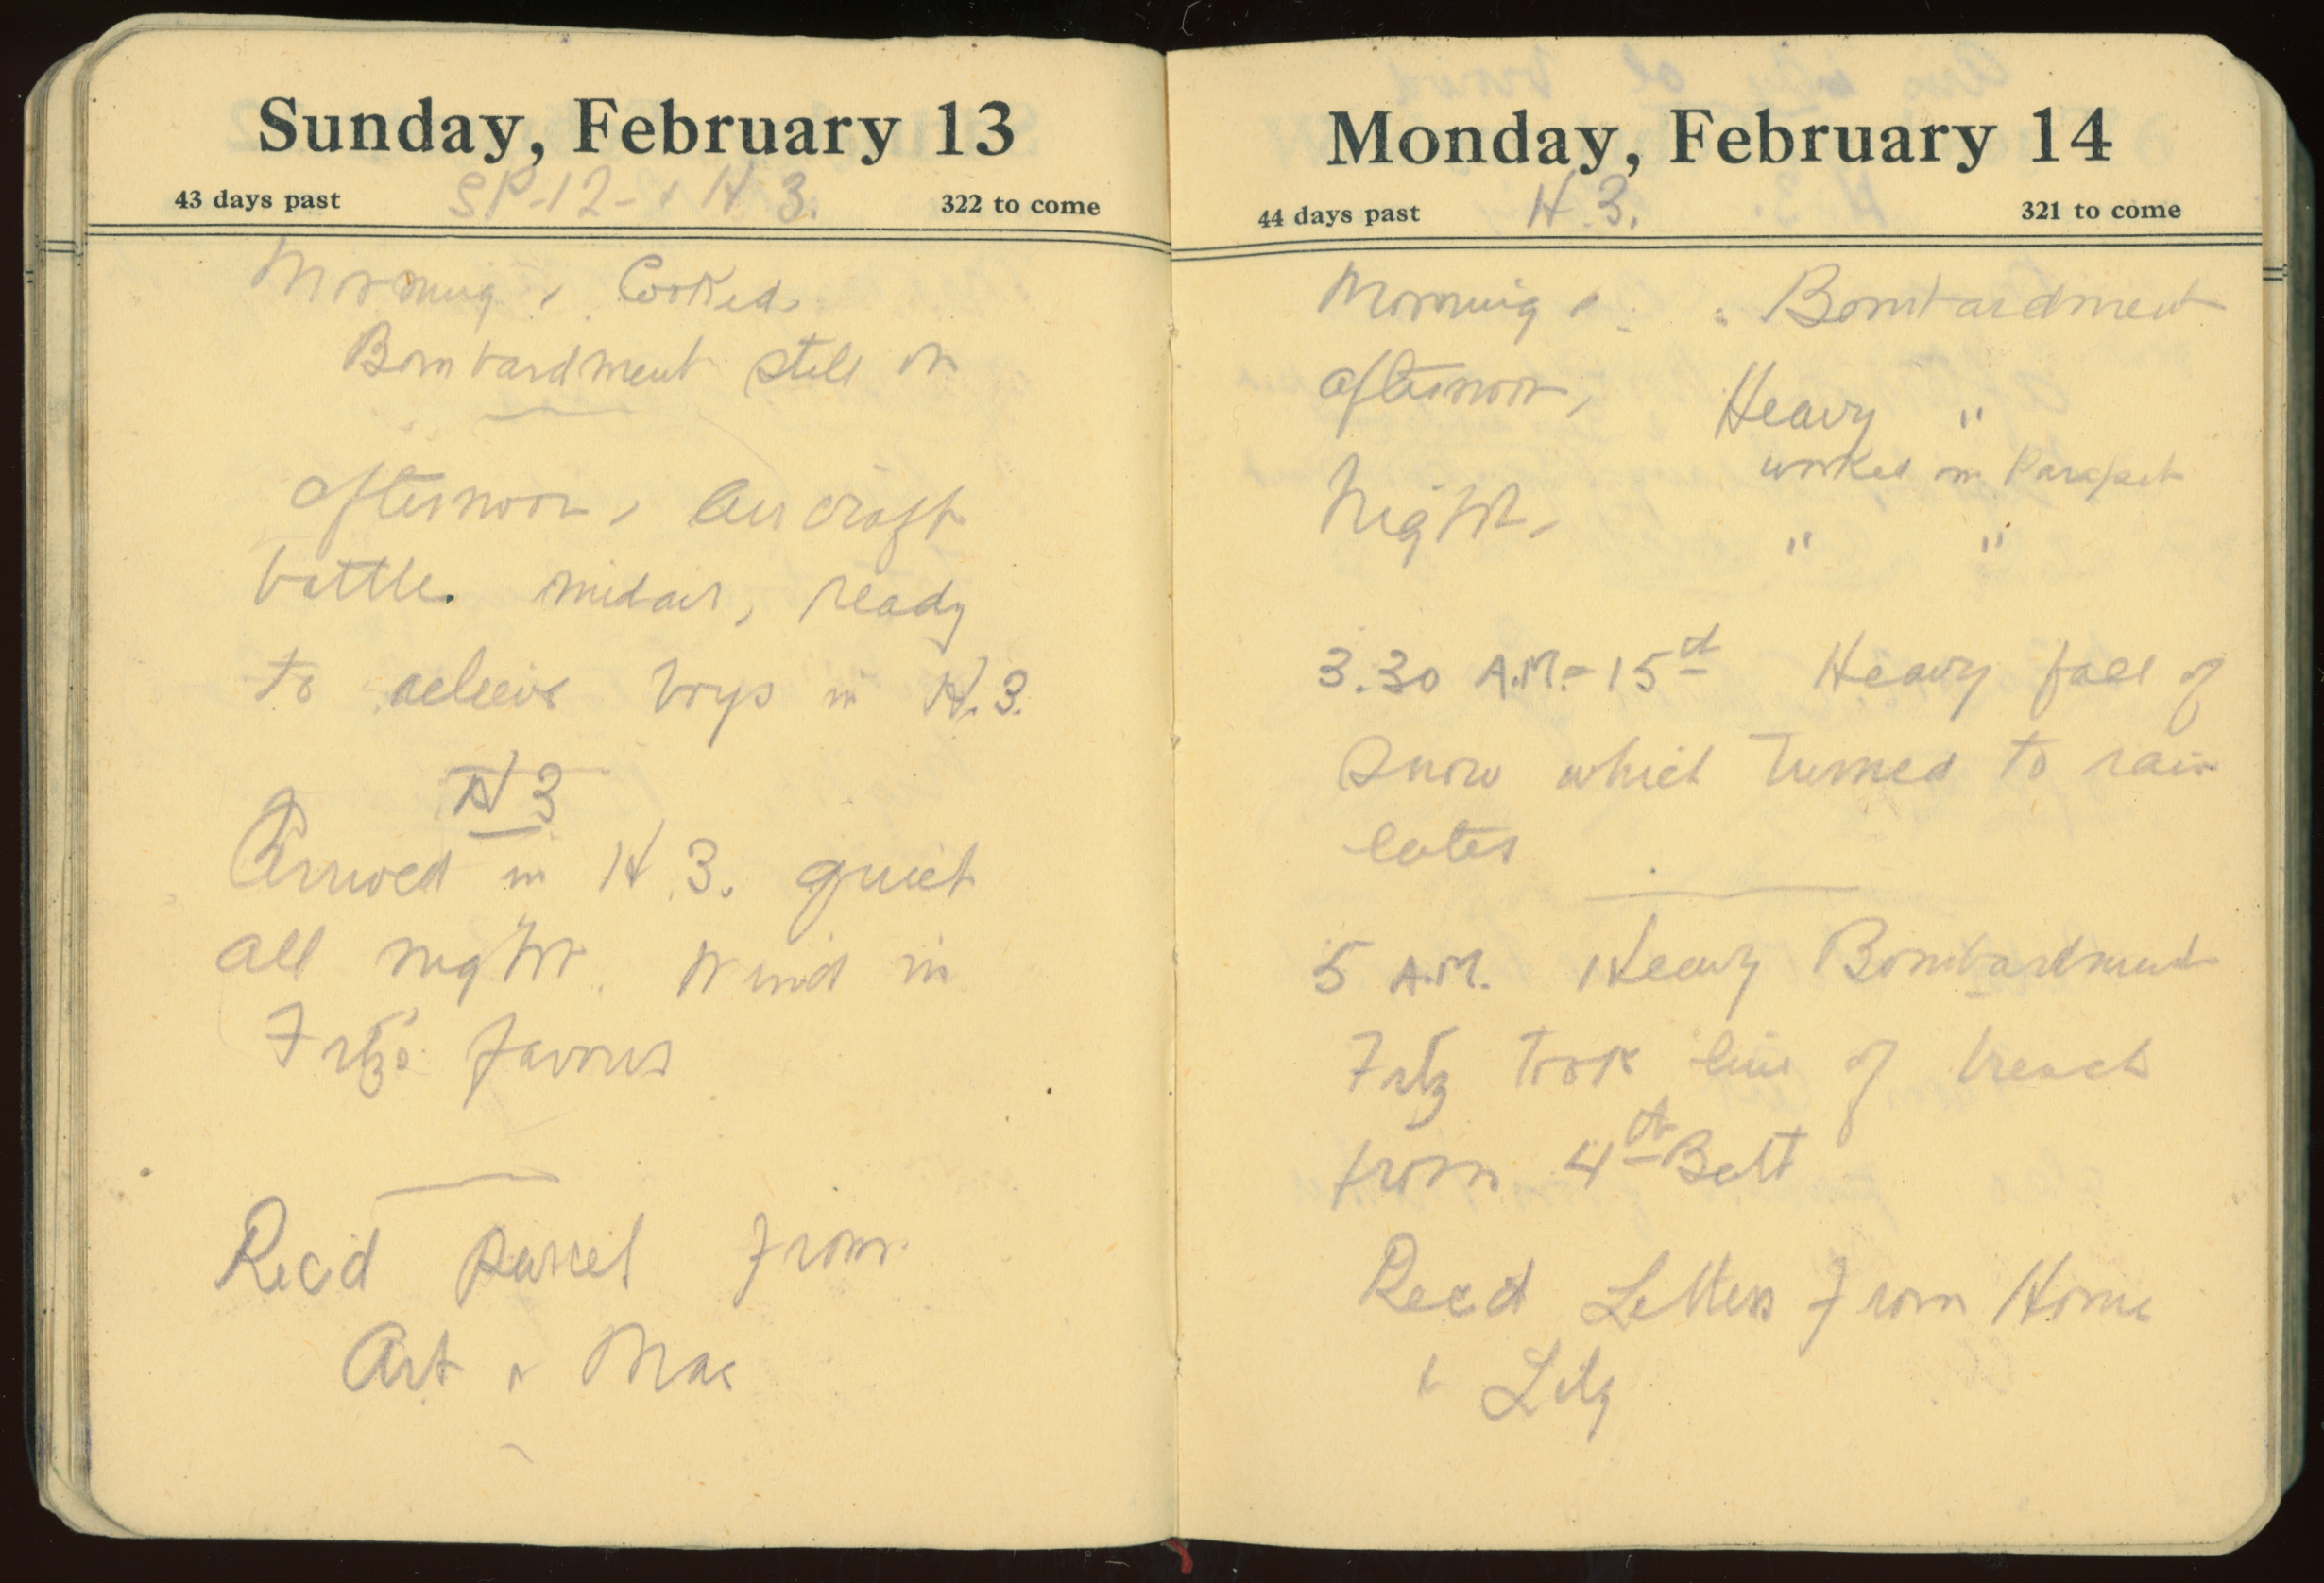 Sunday, February 13
43 days past SP-12- + H 3. 322 to come
Morning, Cooked
Bombardment still on
afternoon, Aircraft
battle. midair, ready
to releive boys in H.3.
H 3
Arrived in H.3. quiet
all night. Wind in
Fritz's favour
Rec'd parcel from
Art + Mac
Monday, February 14
44 days past H.3. 321 to come
Morning, Bombardment
afternoon, Heavy "
worked on Parapet
Night, " "
3.30 A.M.- 15th Heavy fall of
Snow which turned to rain
later
5 A.M. Heavy Bombardment
Fritz took line of trench
from 4th Batt
Rec'd Letters from Home
& Lily